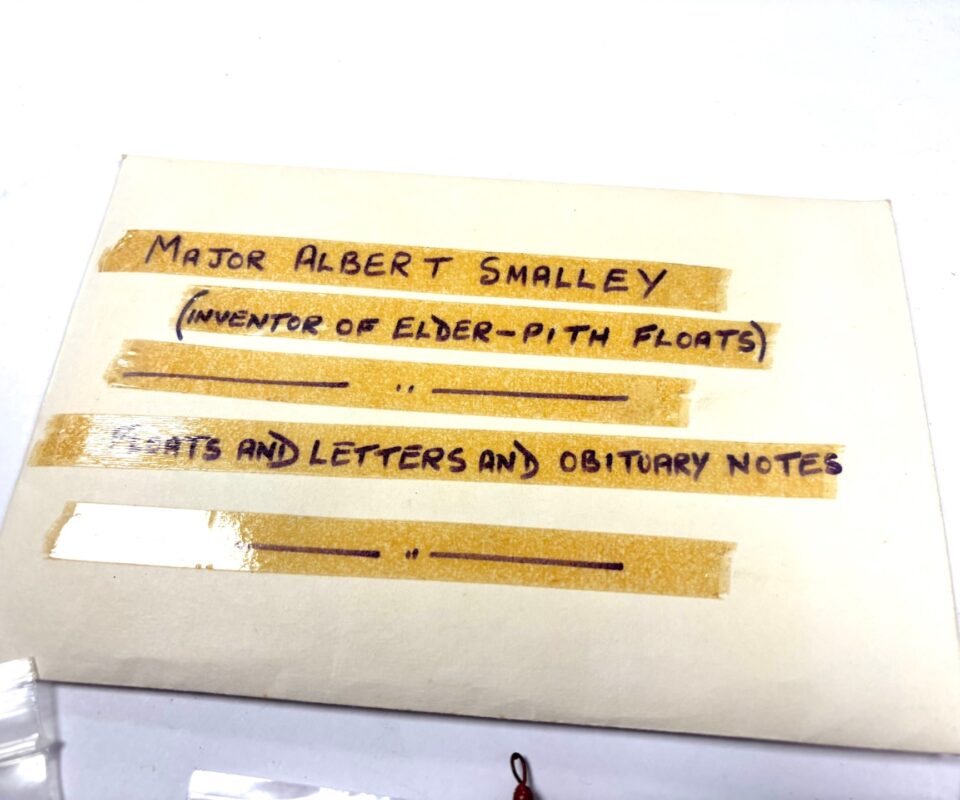 MAJOR ALBERT SMALLEY
(INVENTOR OF ELDER-PITH FLOATS)
———— " ————
FLOATS AND LETTERS AND OBITUARY NOTES
———— " ————